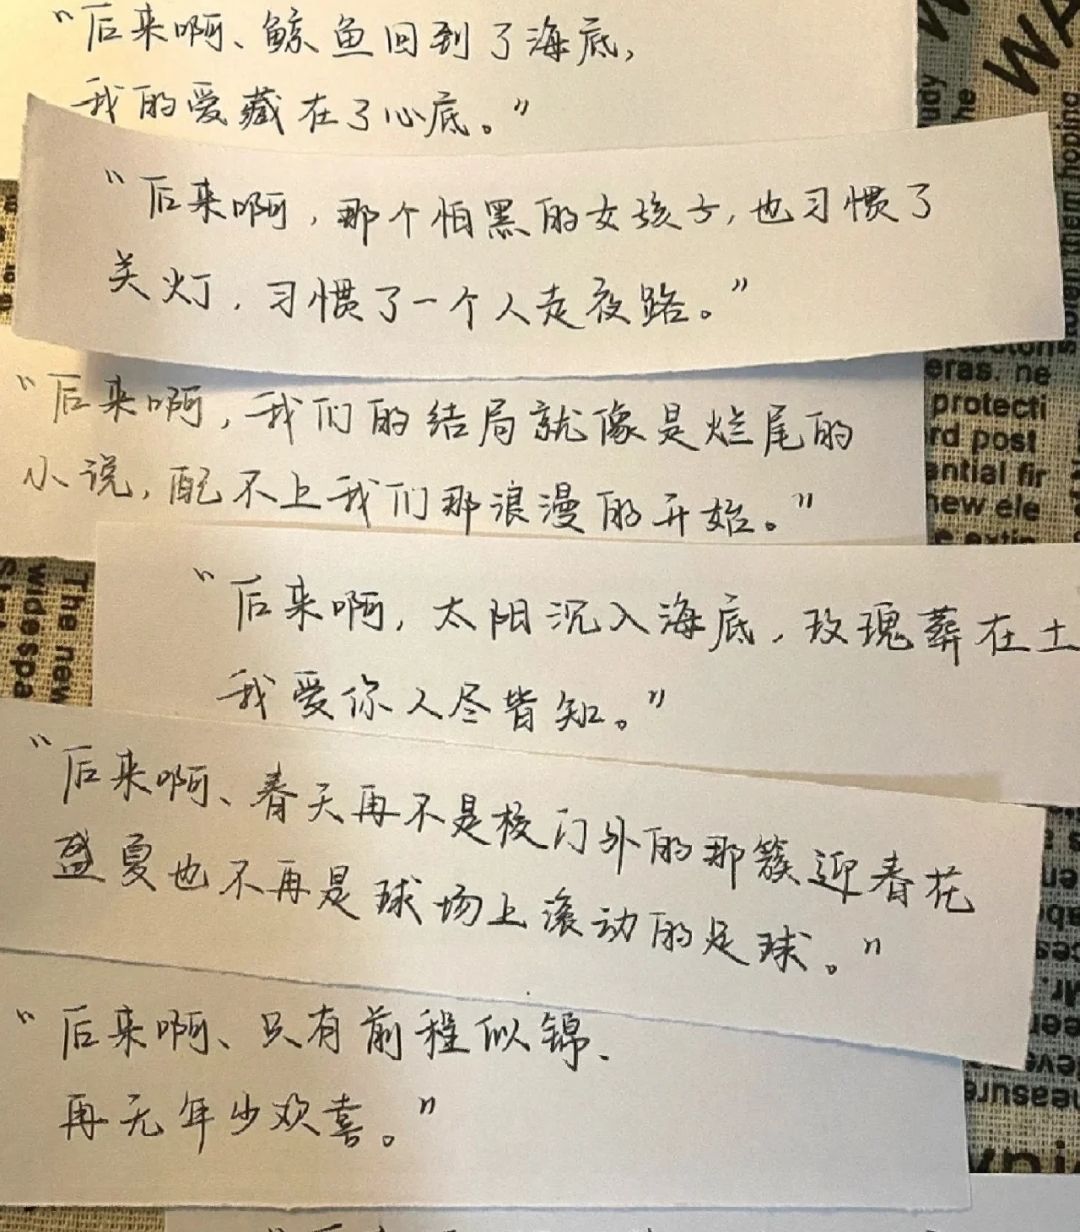 “后来啊、鲸鱼回到了海底,
我的爱藏在了心底。”
“后来啊,那个怕黑的女孩子,也习惯了
关灯,习惯了一个人走夜路。”
“后来啊,我们的结局就像是烂尾的
小说,配不上我们那浪漫的开始。”
“后来啊,太阳沉入海底,玫瑰葬在土
我爱你人尽皆知。”
“后来啊、春天再不是校门外的那簇迎春花
盛夏也不再是球场上滚动的足球。”
“后来啊、只有前程似锦、
再无年少欢喜。”
WA
udy
the
stolen them hoping
eras. ne
protecti
rd post
antial fir
new ele
The new
widespa